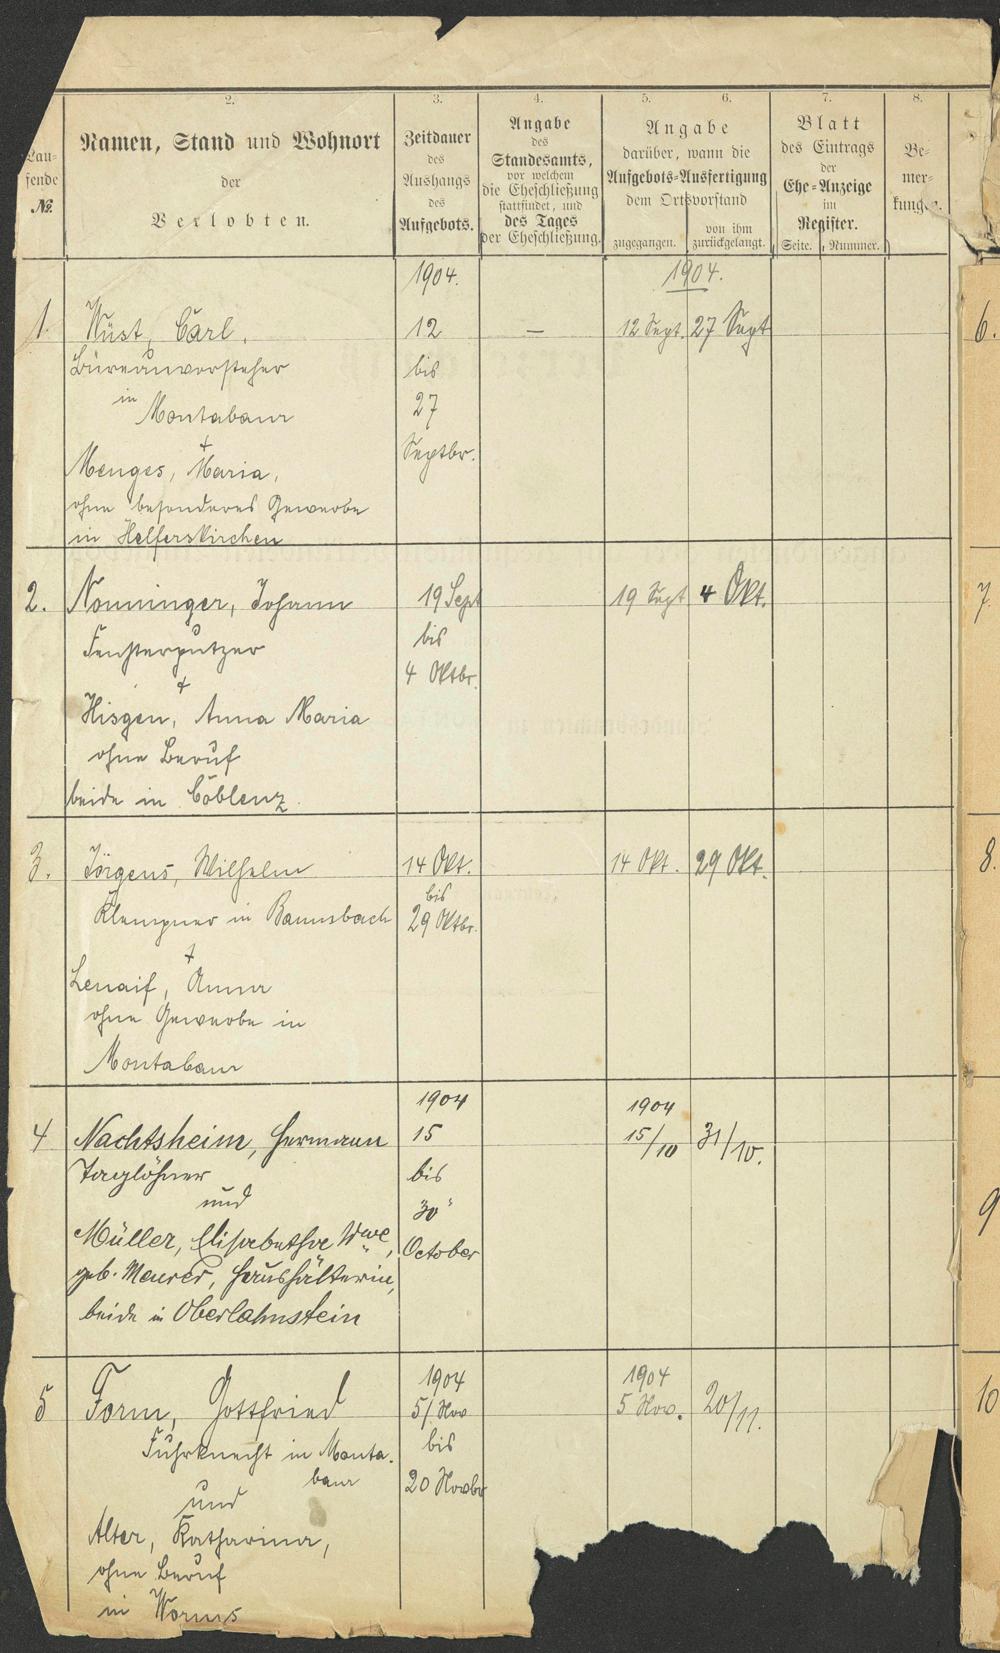 2. 3. 4. 5. 6. 7. 8.
Lau-
fende
No.
Namen, Stand und Wohnort
der
Verlobten.
Zeitdauer
des
Aushangs
des
Aufgebots.
Angabe
des
Standesamts,
vor welchem
die Eheschließung
stattfindet, und
des Tages
der Eheschließung.
Angabe
darüber, wann die
Aufgebots-Ausfertigung
dem Ortsvorstand
zugegangen.
von ihm
zurückgelangt.
Blatt
des Eintrags
der
Ehe-Anzeige
im
Register.
Seite. Nummer.
Be-
mer-
kungen.
1904. 1904.
1. Wüst, Carl, 12 — 12 Sept. 27 Sept
Büreauvorsteher bis
in
Montabaur 27
+ Septbr.
Menges, Maria,
ohne besonderes Gewerbe
in Helferskirchen
2. Nonninger, Johann 19 Sept 19 Sept 4 Okt.
Fensterputzer bis
+ 4 Oktbr.
Hisgen, Anna Maria
ohne Beruf
beide in Coblenz.
3. Jörgens, Wilhelm 14 Okt. 14 Okt. 29 Okt.
bis
Klempner in Baumbach 29 Oktbr.
+
Lenaif, Anna
ohne Gewerbe in
Montabaur
1904 1904
4 Nachtsheim, Hermann 15 15/10 31/10.
Taglöhner bis
und 30
Müller, Elisabetha Wwe, October
geb. Meurer, Haushälterin,
beide in Oberlahnstein
1904 1904
5 Form, Gottfried 5/Nov 5 Nov. 20/11.
Fuhrknecht in Monta- bis
baur 20 Novbr
und
Alter, Katharina,
ohne Beruf
in Worms
6.
7
8.
9
10